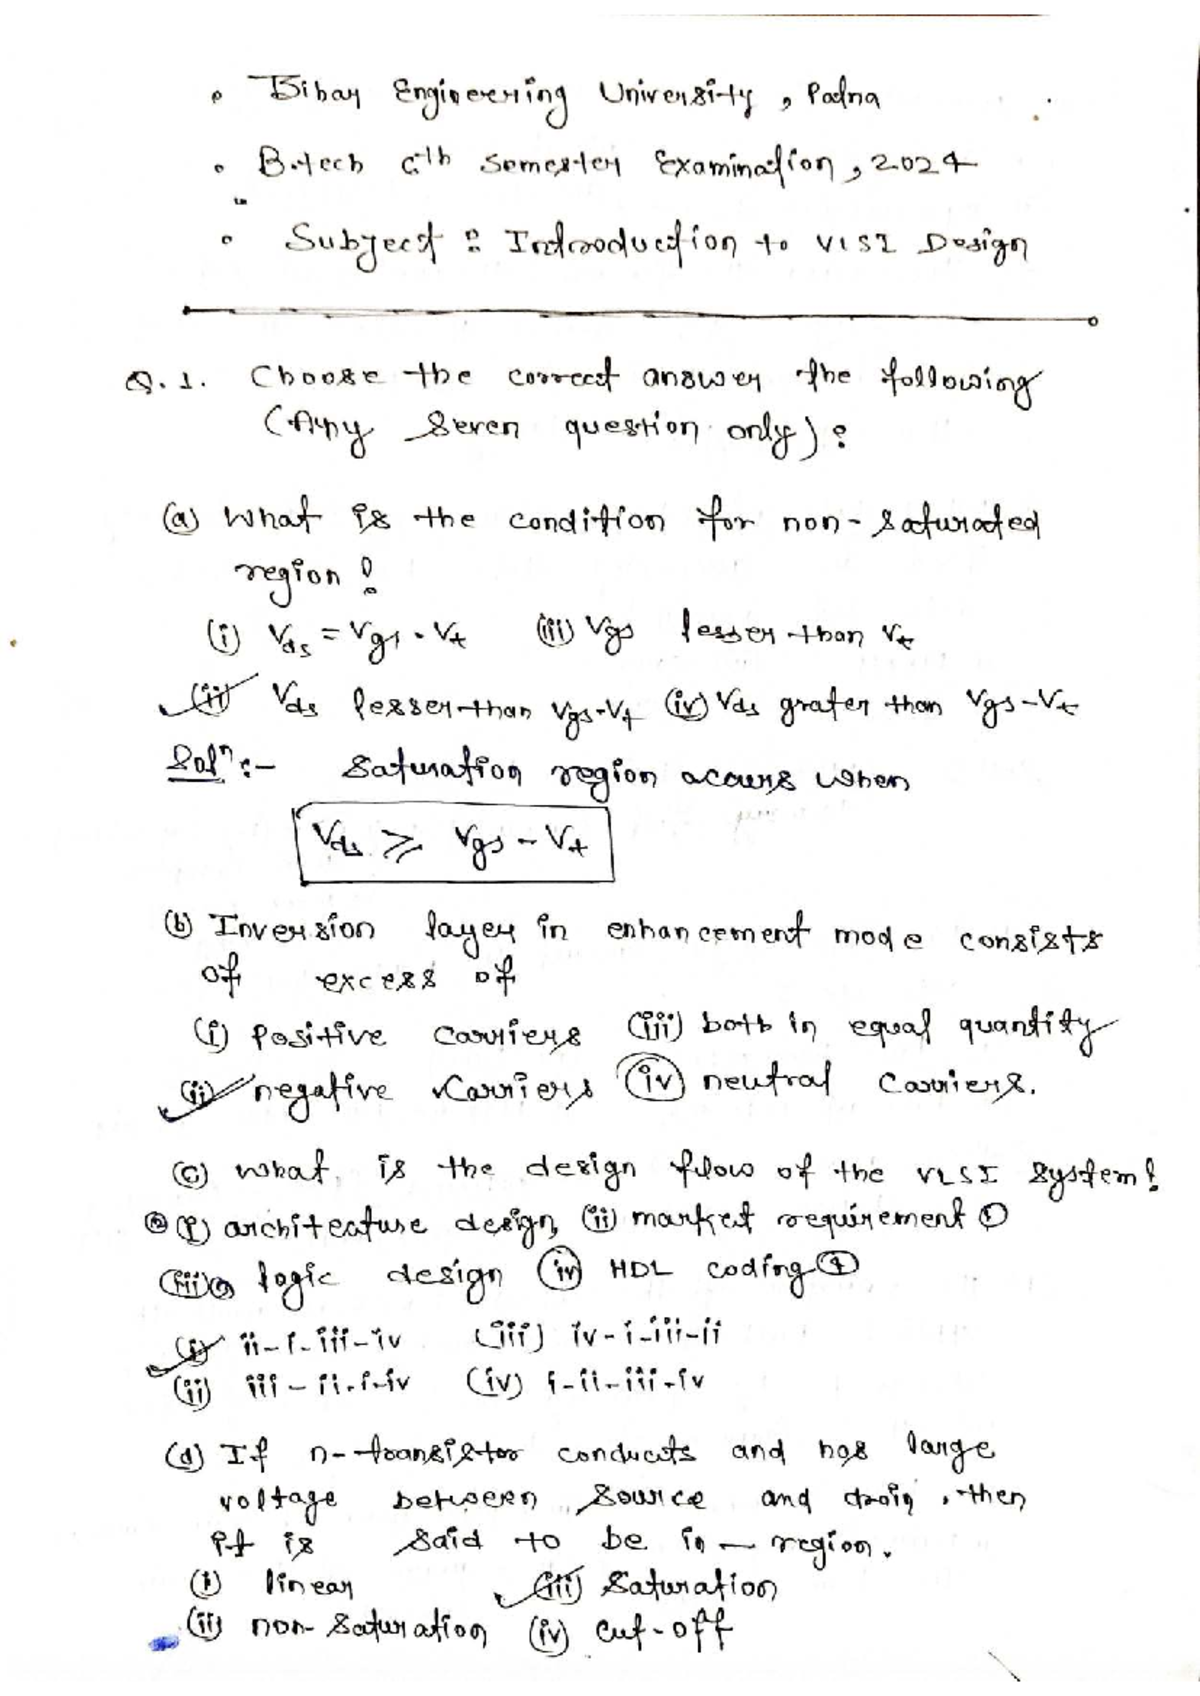 • Bihar Engineering University, Patna
• B.tech 6th Semester Examination, 2024
• Subject : Introduction to VLSI Design
Q.1. Choose the correct answer the following
(Any Seven question only):
(a) What is the condition for non-saturated
region?
(i) Vds = Vgs - Vt (iii) Vgs lesser than Vt
(ii) Vds lesser than Vgs-Vt (iv) Vds grater than Vgs-Vt
Solⁿ:- Saturation region occurs when
Vds ≥ Vgs - Vt
(b) Inversion layer in enhancement mode consists
of excess of
(i) Positive carriers (iii) both in equal quantity
(ii) negative carriers (iv) neutral carriers.
(c) What is the design flow of the VLSI system?
② (i) architecture design, (ii) market requirement ①
(iii) ③ logic design (iv) HDL coding ④
(i) ii-i-iii-iv (iii) iv-i-iii-ii
(ii) iii-ii-i-iv (iv) i-ii-iii-iv
(d) If n-transistor conducts and has large
voltage between source and drain, then
it is said to be in — region.
(i) linear (iii) Saturation
(ii) non-Saturation (iv) cut-off